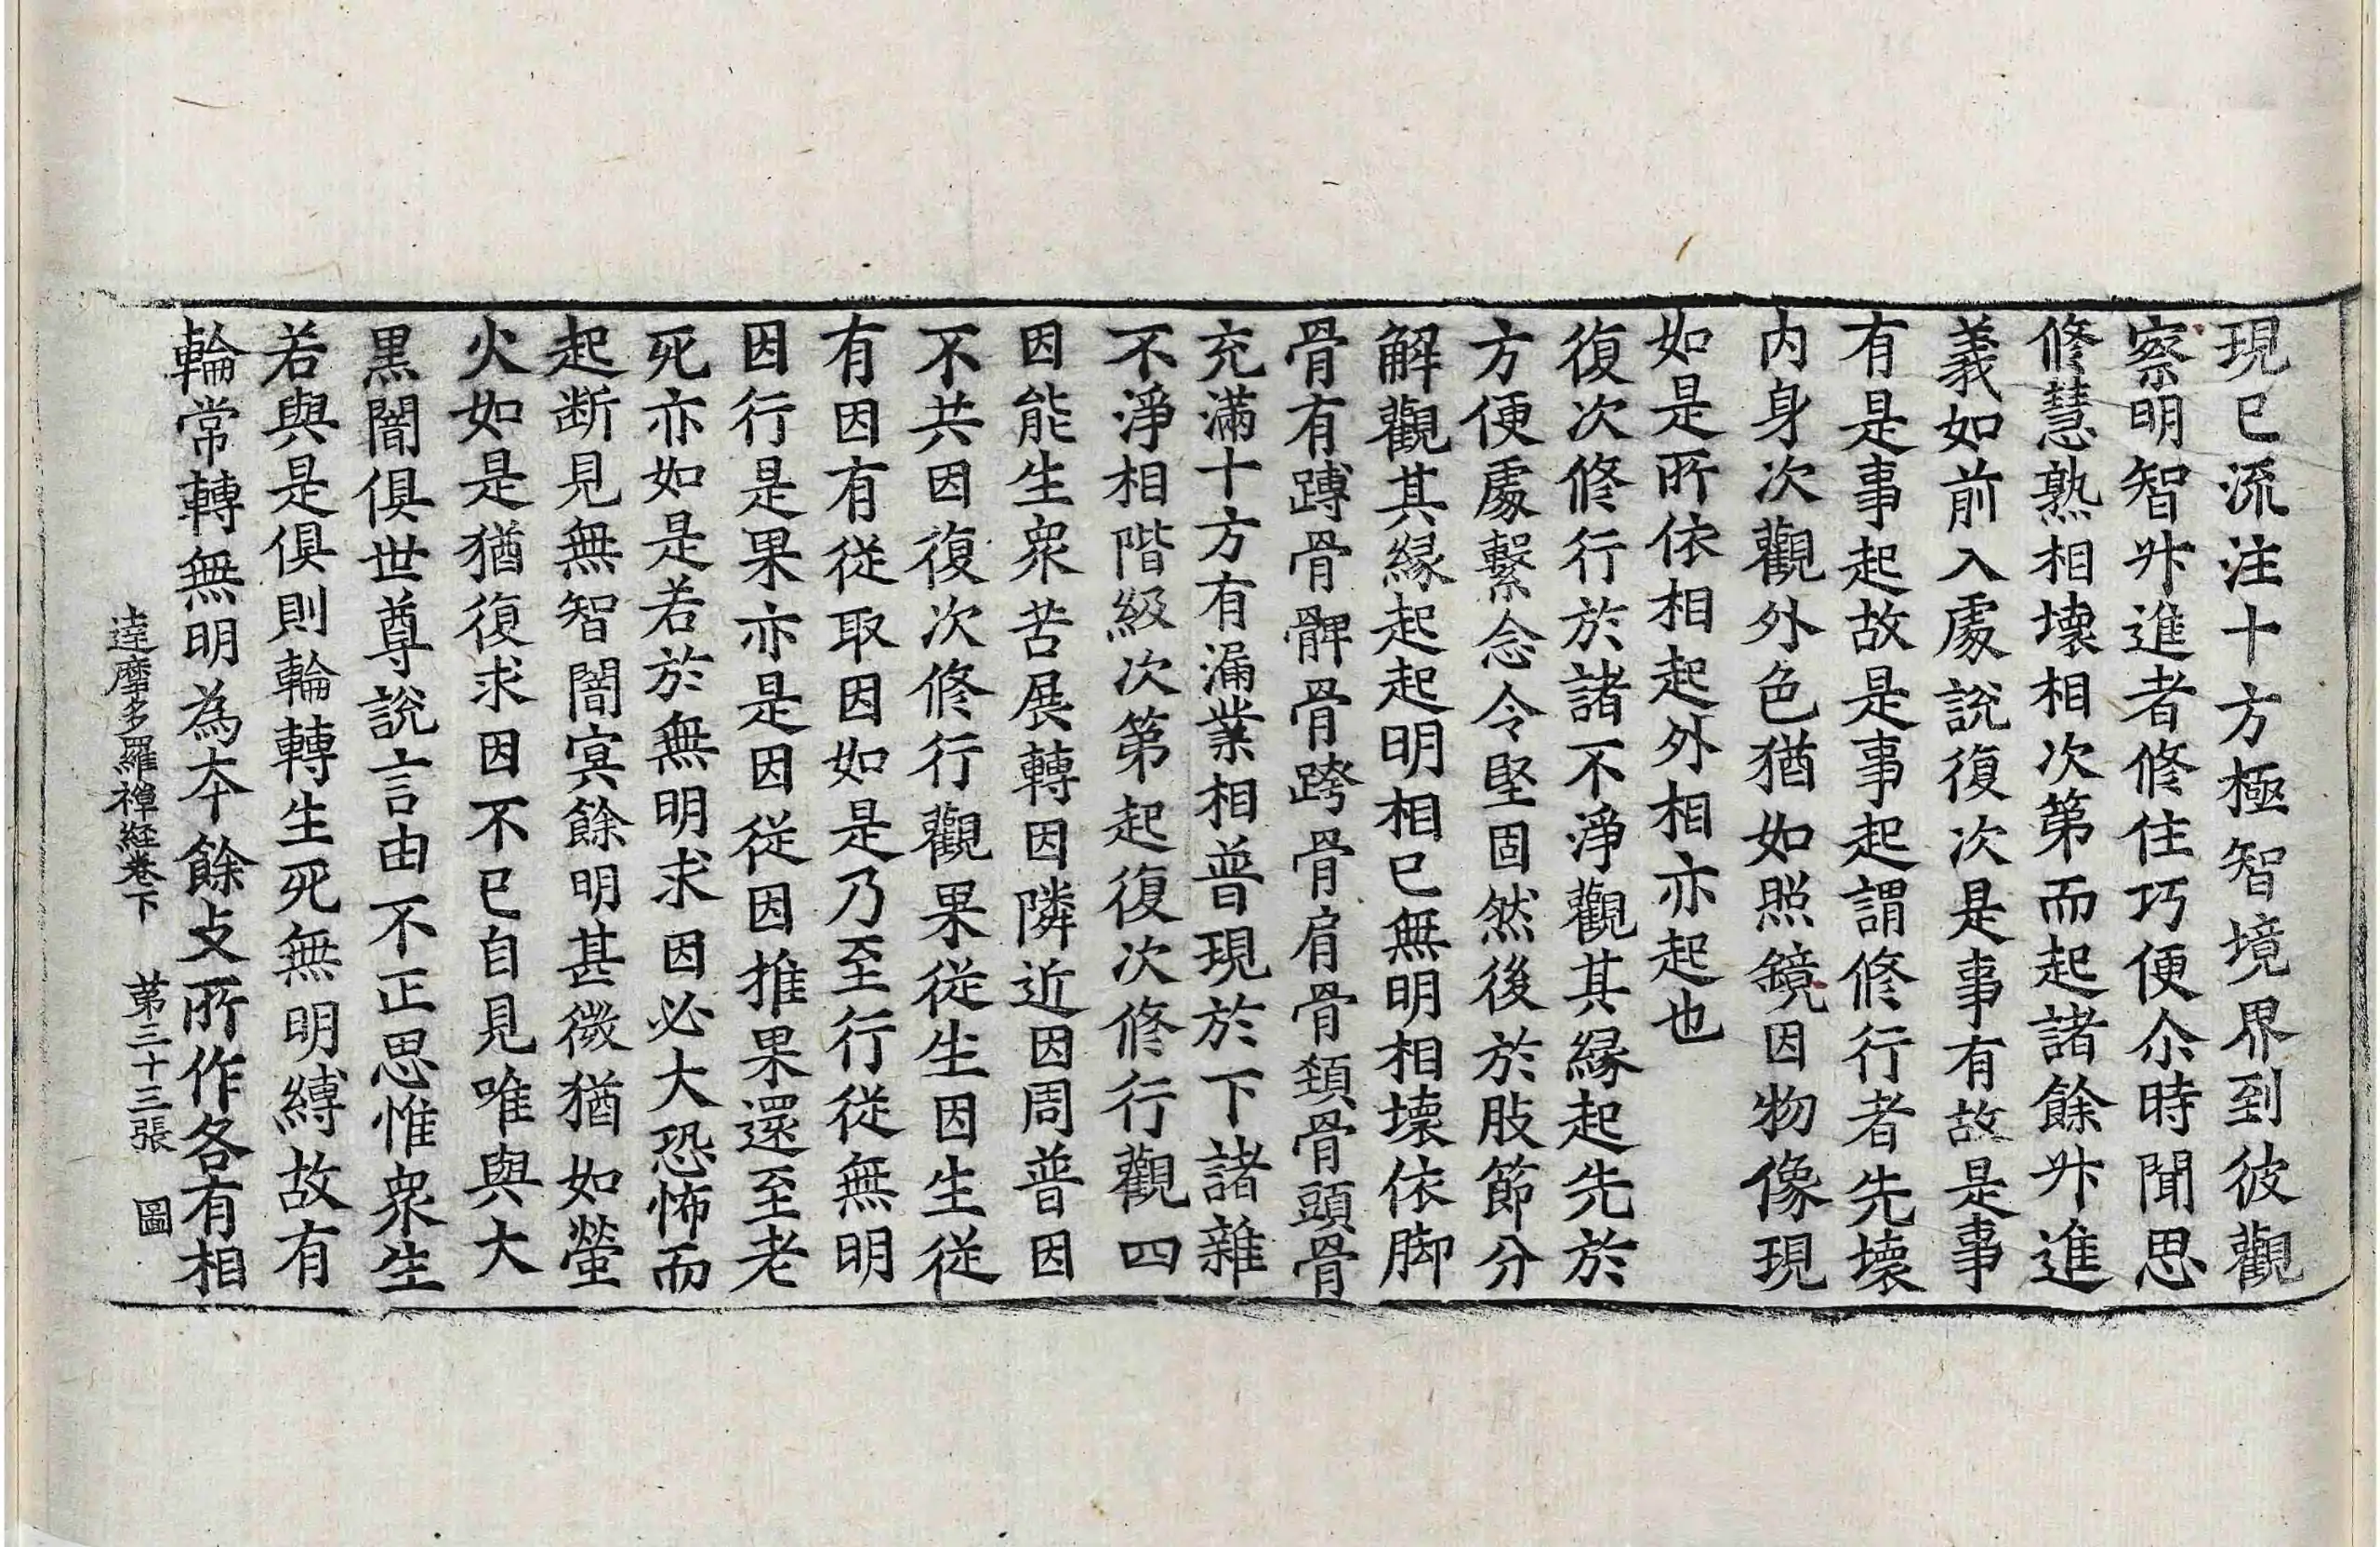 現已流注十方極智境界到彼觀
察明智升進者修住巧便尒時聞思
修慧熟相壞相次第而起諸餘升進
義如前入處說復次是事有故是事
有是事起故是事起謂修行者先壞
内身次觀外色猶如照鏡因物像現
如是所依相起外相亦起也
復次修行於諸不淨觀其緣起先於
方便處繫念令堅固然後於肢節分
解觀其緣起起明相已無明相壞依脚
骨有䏝骨髀骨跨骨肩骨頸骨頭骨
充滿十方有漏業相普現於下諸雜
不淨相階級次第起復次修行觀四
因能生衆苦展轉因隣近因周普因
不共因復次修行觀果從生因生從
有因有從取因如是乃至行從無明
因行是果亦是因從因推果還至老
死亦如是若於無明求因必大恐怖而
起断見無智闇冥餘明甚微猶如螢
火如是猶復求因不已自見唯與大
黒闇俱世尊說言由不正思惟衆生
若與是俱則輪轉生死無明縛故有
輪常轉無明為本餘攴所作各有相
達摩多羅禅経卷下　第三十三張　圖